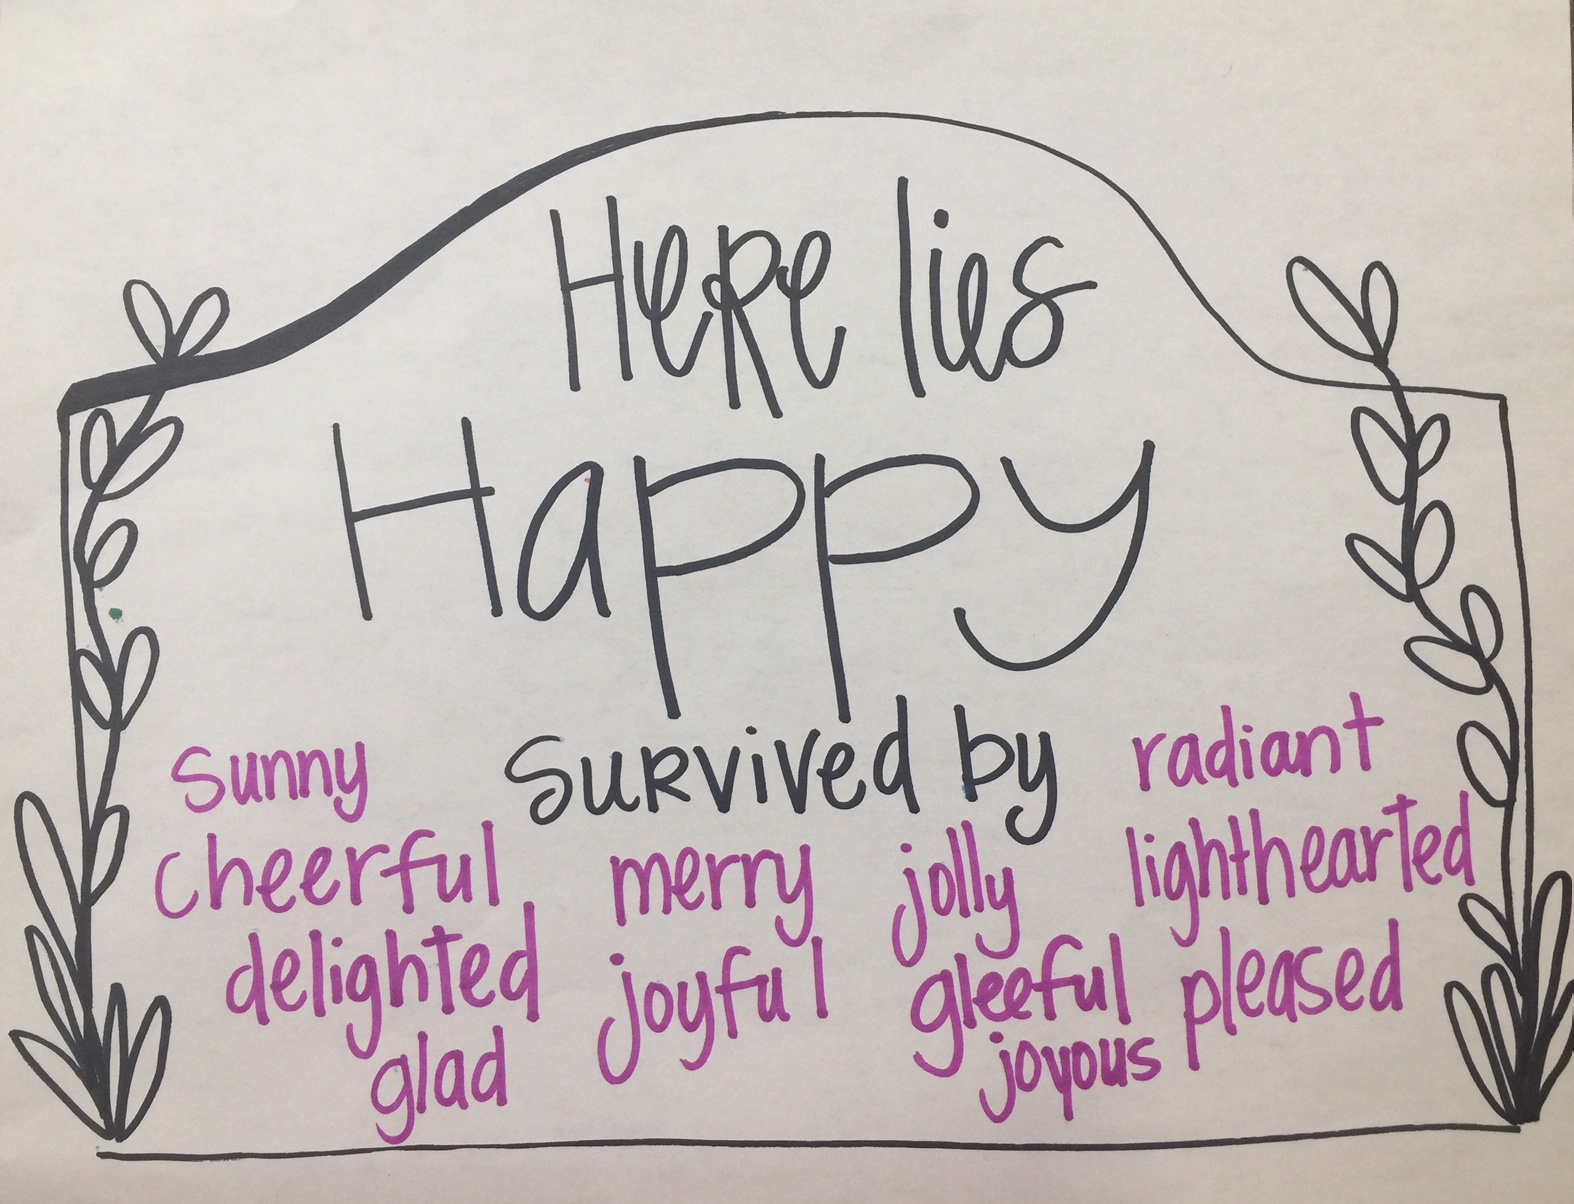 Here lies
Happy
sunny Survived by radiant
cheerful merry jolly lighthearted
delighted joyful gleeful pleased
glad joyous